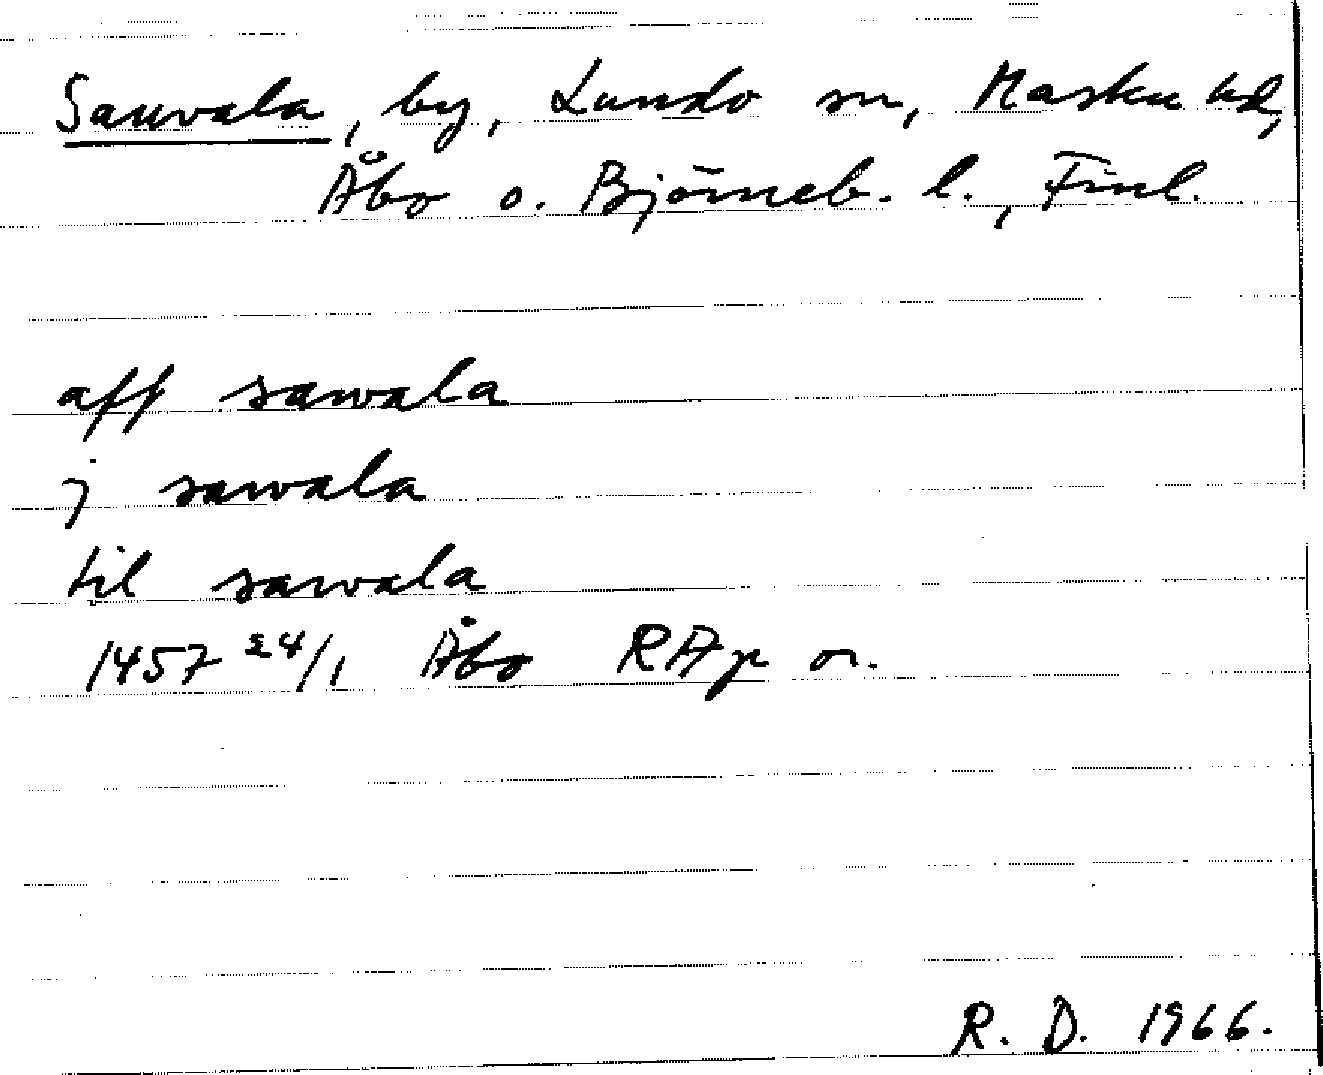 Sauvala, by, Lundo sn, Masku hd,
Åbo o. Björneb. l., Finl.
aff sawala
j sawala
til sawala
1457 24/1 Åbo RAp or.
R. D. 1966.